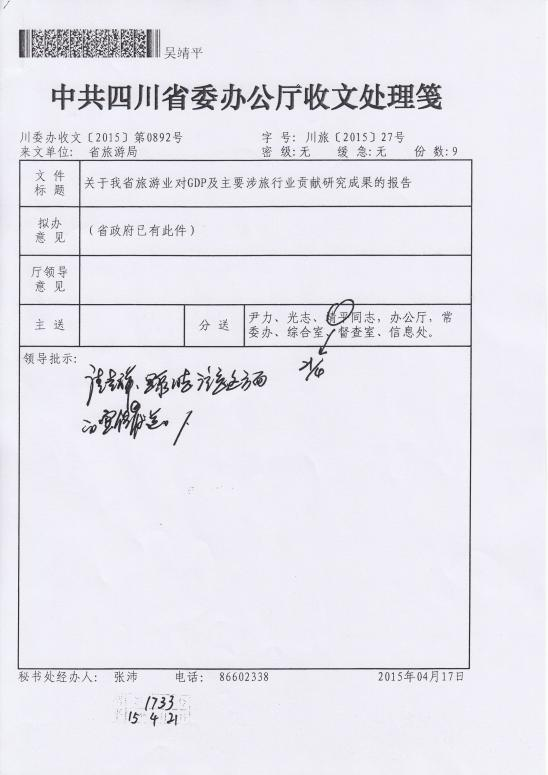 吴靖平
中共四川省委办公厅收文处理笺
川委办收文〔2015〕第0892号 字 号: 川旅〔2015〕27号
来文单位: 省旅游局 密 级:无 缓 急:无 份 数:9
文 件
标 题
关于我省旅游业对GDP及主要涉旅行业贡献研究成果的报告
拟办
意 见
(省政府已有此件)
厅领导
意 见
主 送
分 送
尹力、光志、靖平同志,办公厅,常
委办、综合室、督查室、信息处。
领导批示:
21/4
秘书处经办人: 张沛 电话: 86602338 2015年04月17日
1733
15 4 21